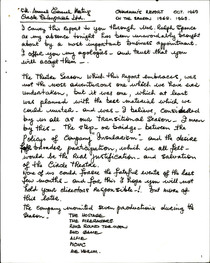 Annual General Meeting
Circle Theatre Guild Ltd.
Chairman's Report Oct. 1969
on the season 1968. 1969.
I convey this report to you through
as my absence tonight has been unavoidably brought
about by a most important business appointment.
I offer you my apologies - and trust that you
will accept them -
The Theatre Season which this Report embraces, was
not the most adventurous one which we have ever
undertaken, but it was one, which at least
was planned with the best material which we
could muster - and was, I believe, considered
by us all as our Transitional Season - I mean
by this - the step or bridge - between the
Policy of Company - and the desire
for participation, which we all felt -
would be the real justification - and salvation
of the Circle Theatre.
None of us could foresee the fateful events of the last
few months - and for this I hope you will not
hold your directors Responsible -! But more of
this later.
The company mounted seven productions during the
Season:
THE HOSTAGE
THE FIRERAISERS
RING ROUND THE MOON
END GAME
ALFIE
PICNIC